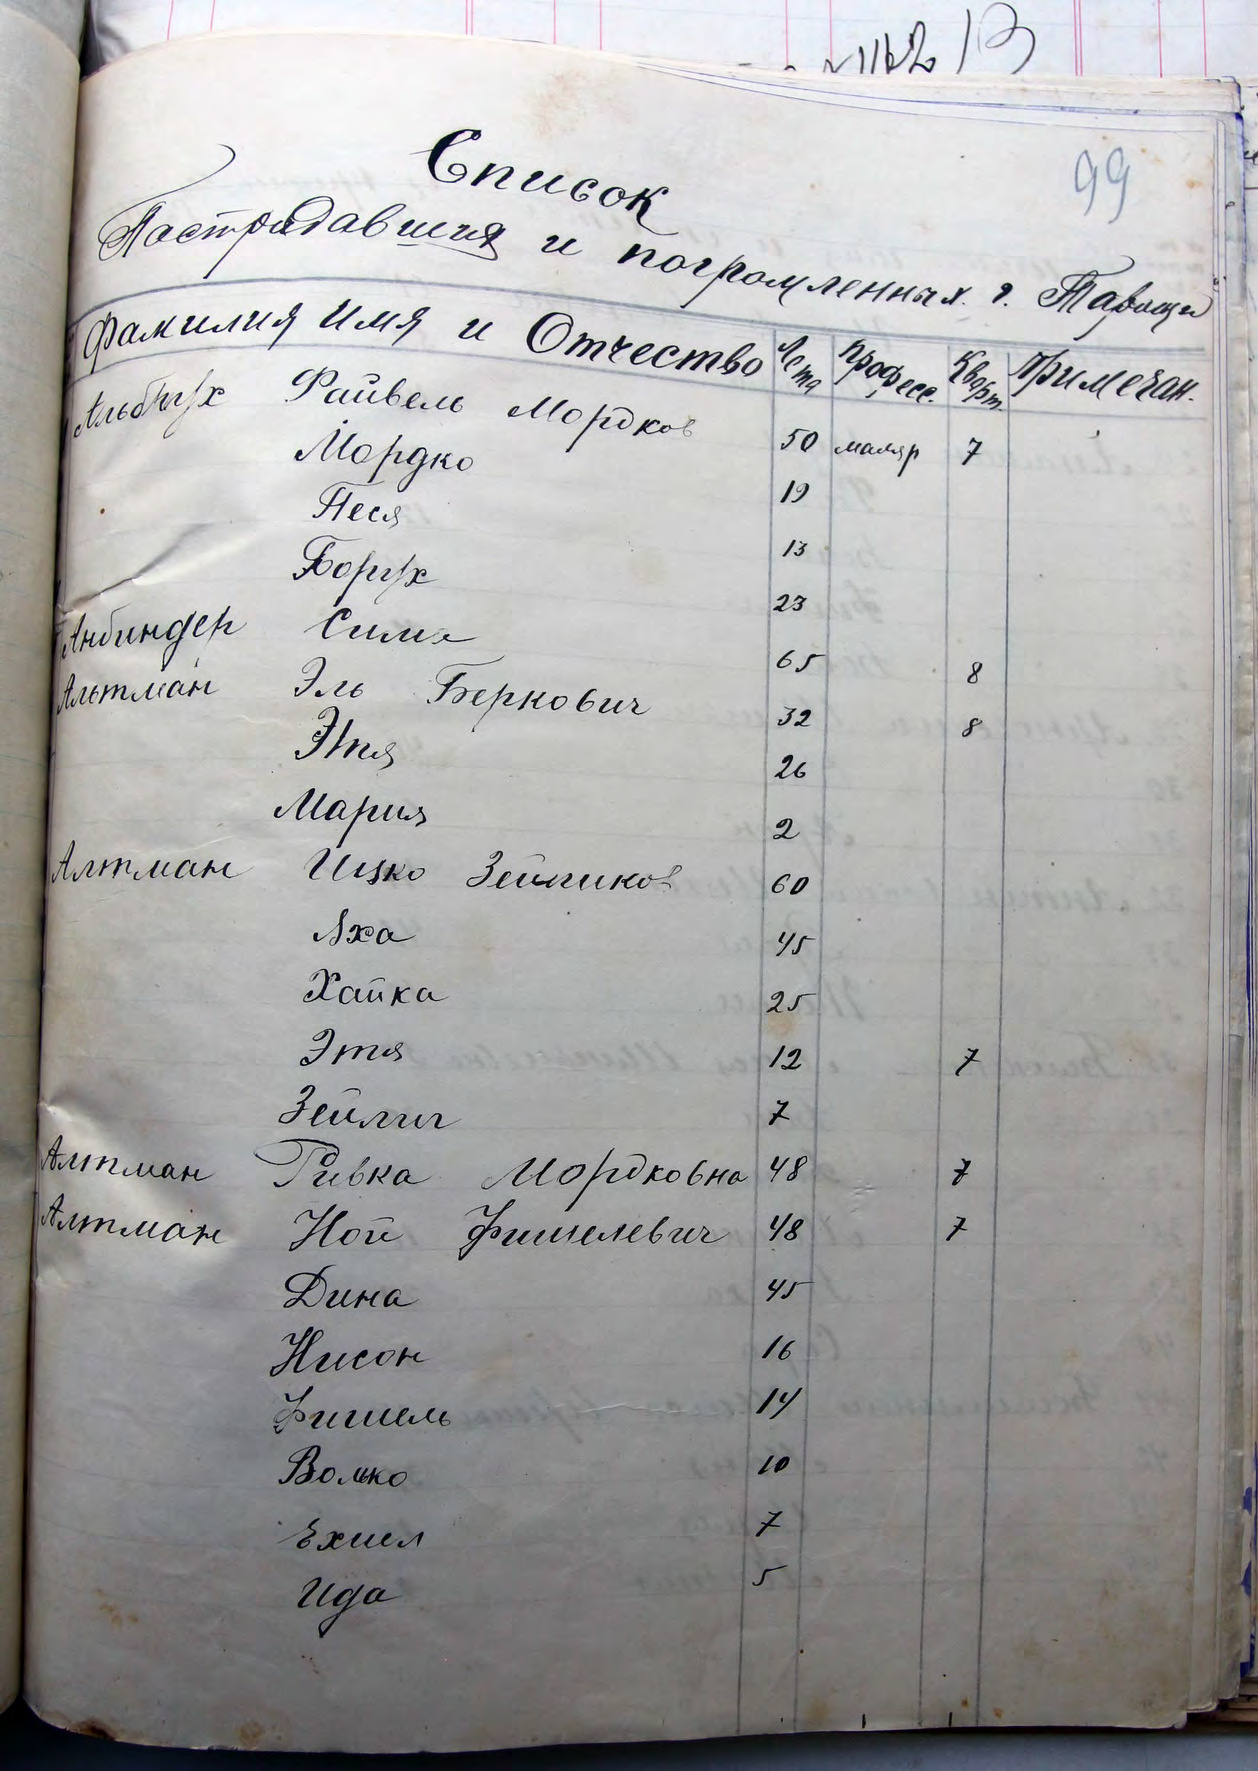 99
Список
Пастрадавшия и погромленных г. Таращи
Фамилия Имя и Отчество Лета професс. Кварт. примечан.
Альбрух Файвель Мордков 50 маляр 7
Мордко 19
Песя 13
Борух 23
Анбиндер Сима 65 8
Альтман Эль Беркович 32 8
Этя 26
Мария 2
Алтман Ицко Зейликов 60
Аха 45
Хайка 25
Этя 12 7
Зейлиг 7
Алтман Ривка Мордковна 48 7
Алтман Ной Фишелевич 48 7
Дина 45
Нисон 16
Фишель 14
Волько 10
Ехиел 7
Ида 5